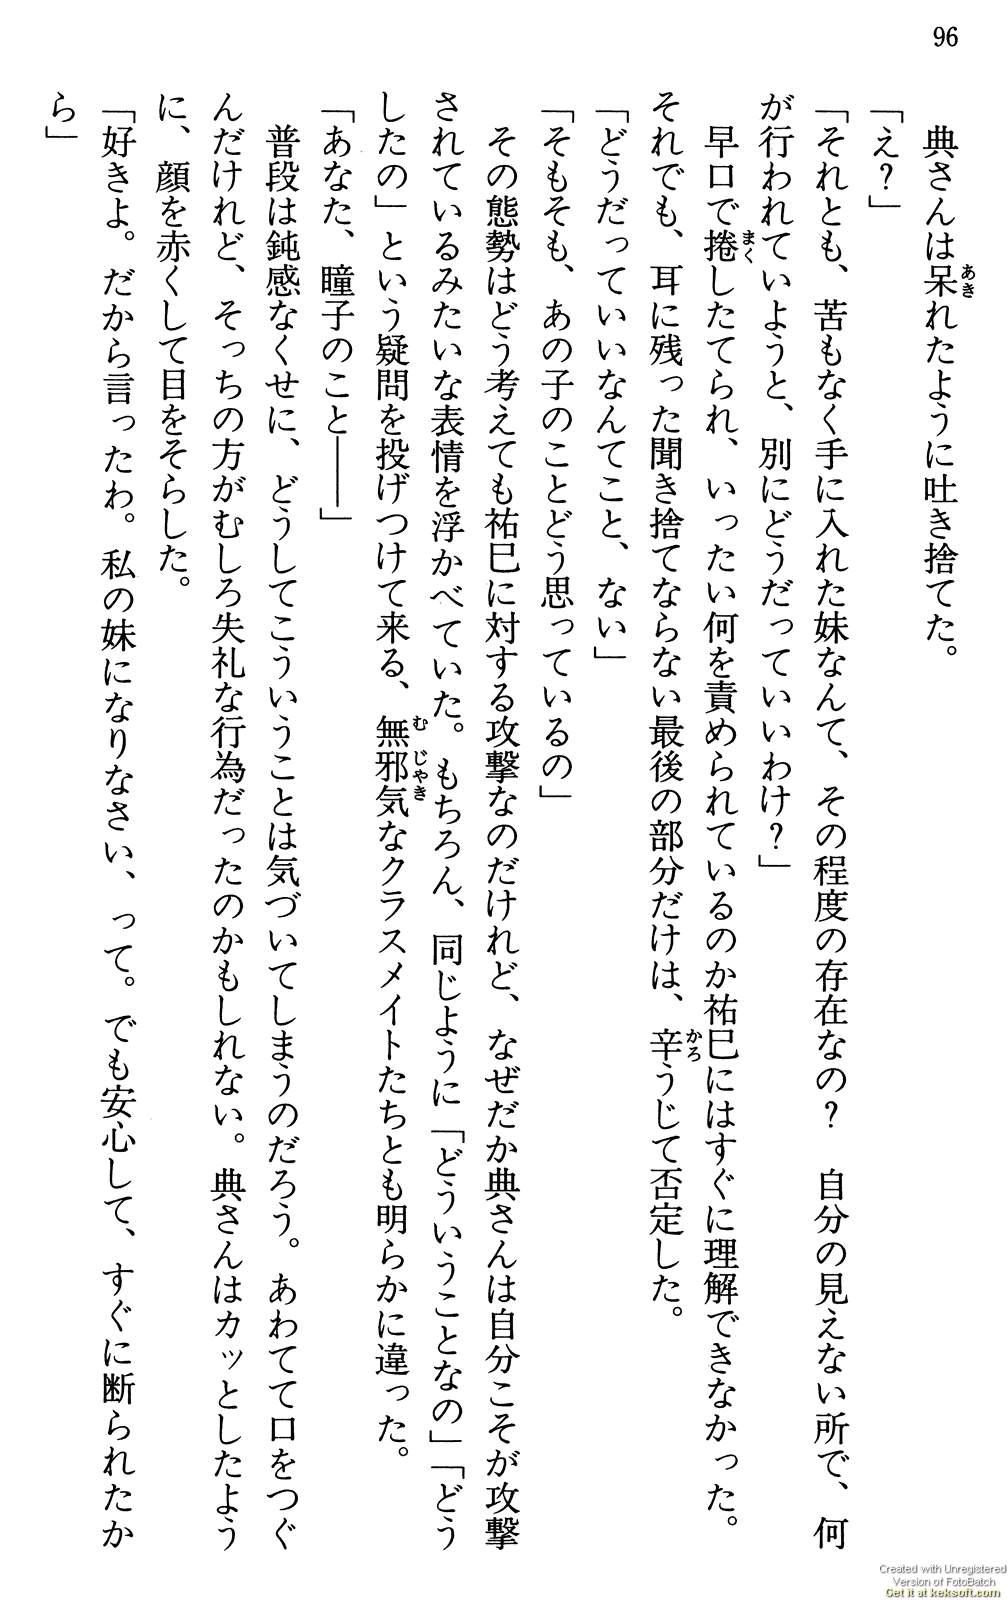 96
典さんは呆れたように吐き捨てた。
「え?」
「それとも、苦もなく手に入れた妹なんて、その程度の存在なの? 自分の見えない所で、何
が行われていようと、別にどうだっていいわけ?」
早口で捲したてられ、いったい何を責められているのか祐巳にはすぐに理解できなかった。
それでも、耳に残った聞き捨てならない最後の部分だけは、辛うじて否定した。
「どうだっていいなんてこと、ない」
「そもそも、あの子のことどう思っているの」
その態勢はどう考えても祐巳に対する攻撃なのだけれど、なぜだか典さんは自分こそが攻撃
されているみたいな表情を浮かべていた。もちろん、同じように「どういうことなの」「どう
したの」という疑問を投げつけて来る、無邪気なクラスメイトたちとも明らかに違った。
「あなた、瞳子のこと――」
普段は鈍感なくせに、どうしてこういうことは気づいてしまうのだろう。あわてて口をつぐ
んだけれど、そっちの方がむしろ失礼な行為だったのかもしれない。典さんはカッとしたよう
に、顔を赤くして目をそらした。
「好きよ。だから言ったわ。私の妹になりなさい、って。でも安心して、すぐに断られたか
ら」
あき
まく
かろ
む じゃき
Created with Unregistered
Version of FotoBatch
Get it at keksoft.com